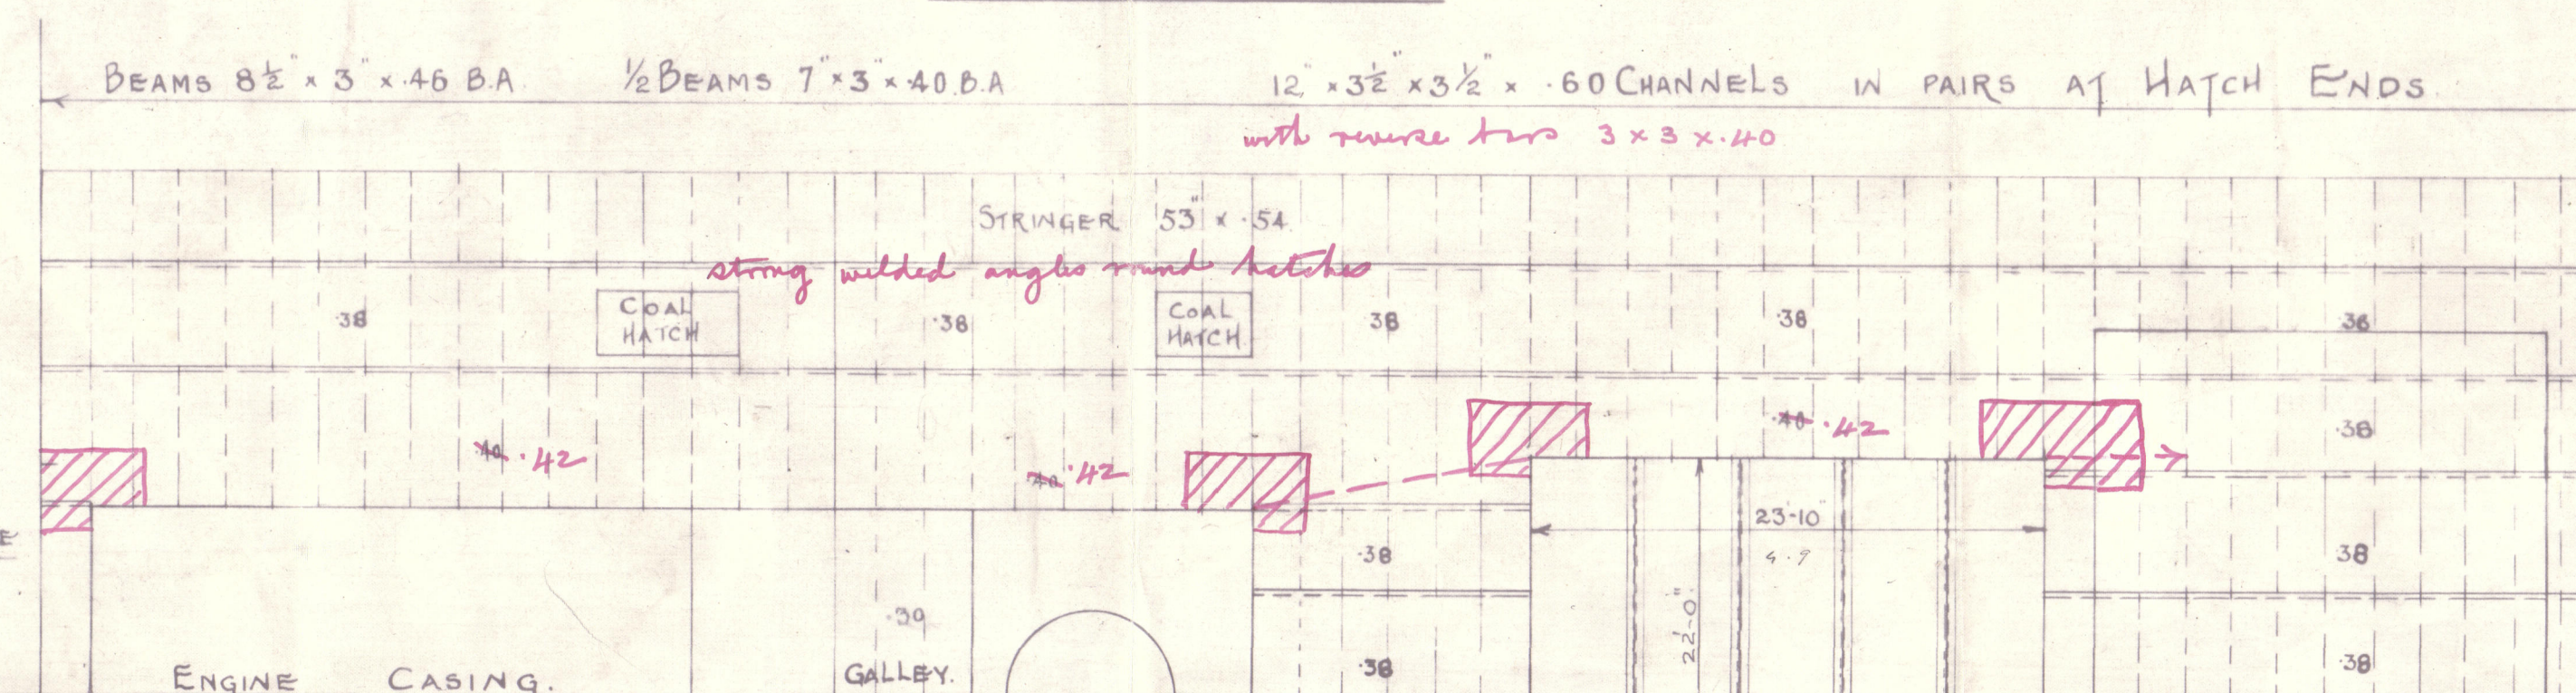 BEAMS 8½" × 3" × .46 B.A. ½ BEAMS 7" × 3" × .40 B.A 12" × 3½" × 3½" × .60 CHANNELS IN PAIRS AT HATCH ENDS
with reverse bars 3 × 3 × .40
STRINGER 53" × .54
strong welded angles round hatches
.38 COAL HATCH .38 COAL HATCH .38 .38 .36
.40 .42 .38
.40 .42
.40 .42
23'-10"
4.9
.38 .38
22'-0"
.39
.38 .38
ENGINE CASING. GALLEY.